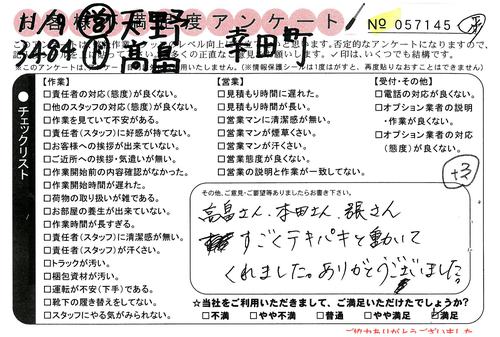 お客様満足度アンケート
11/9 営 天野 幸田町
3484 高畠
№ 057145
【作業】
□責任者の対応(態度)が良くない。
□他のスタッフの対応(態度)が良くない。
□作業を見ていて不安がある。
□責任者(スタッフ)に好感が持てない。
□お客様への挨拶が出来ていない。
□ご近所への挨拶・気遣いが無い。
□作業開始前の内容確認がなかった。
□作業開始時間が遅れた。
□荷物の取り扱いが雑である。
□お部屋の養生が出来ていない。
□作業時間が長すぎる。
□責任者(スタッフ)に清潔感が無い。
□責任者(スタッフ)が汗くさい。
□トラックが汚い。
□梱包資材が汚い。
□運転が不安(下手)である。
□靴下の履き替えをしてない。
□スタッフにやる気がみられない。
【営業】
□見積もり時間に遅れた。
□見積もり時間が長い。
□営業マンに清潔感が無い。
□営業マンが煙草くさい。
□営業マンが汗くさい。
□営業態度が良くない。
□営業の説明と作業が一致してない。
【受付・その他】
□電話の対応が良くない。
□オプション業者の説明
・作業が良くない。
□オプション業者の対応
(態度)が良くない。
●チェックリスト
+3
その他、ご意見・ご要望等ありましたらお書き下さい。
高畠さん、本田さん、張さん
すごくテキパキと動いて
くれました。ありがとうございました。
☆当社をご利用いただきまして、ご満足いただけたでしょうか?
□不満 □やや不満 □普通 □やや満足 ☑満足
ご協力ありがとうございました